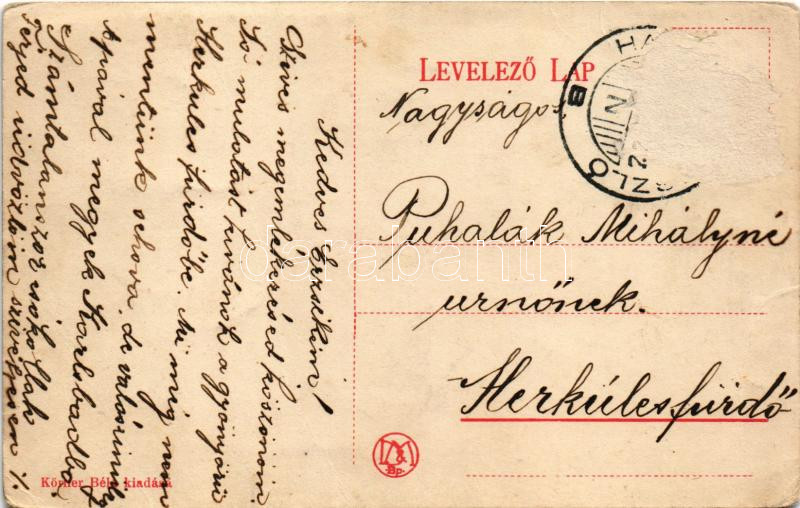 LEVELEZŐ LAP
Nagyságos
Puhalák Mihályné
urnőnek.
Herkúlesfürdő
Kedves Erzsikém!
Szíves megemlékezésed köszönöm
Jó mulatást kivánok a gyönyörü
Herkules fürdőbe. Mi még nem
mentünk sehova, de valószinüleg
Apával megyek Karlsbadba.
Számtalanszor csókollak
Férjed üdvözlöm szivélyesen
Körner Béla kiadása
D&M
Bp.
HA
SZLÓ
B
N
darabanth